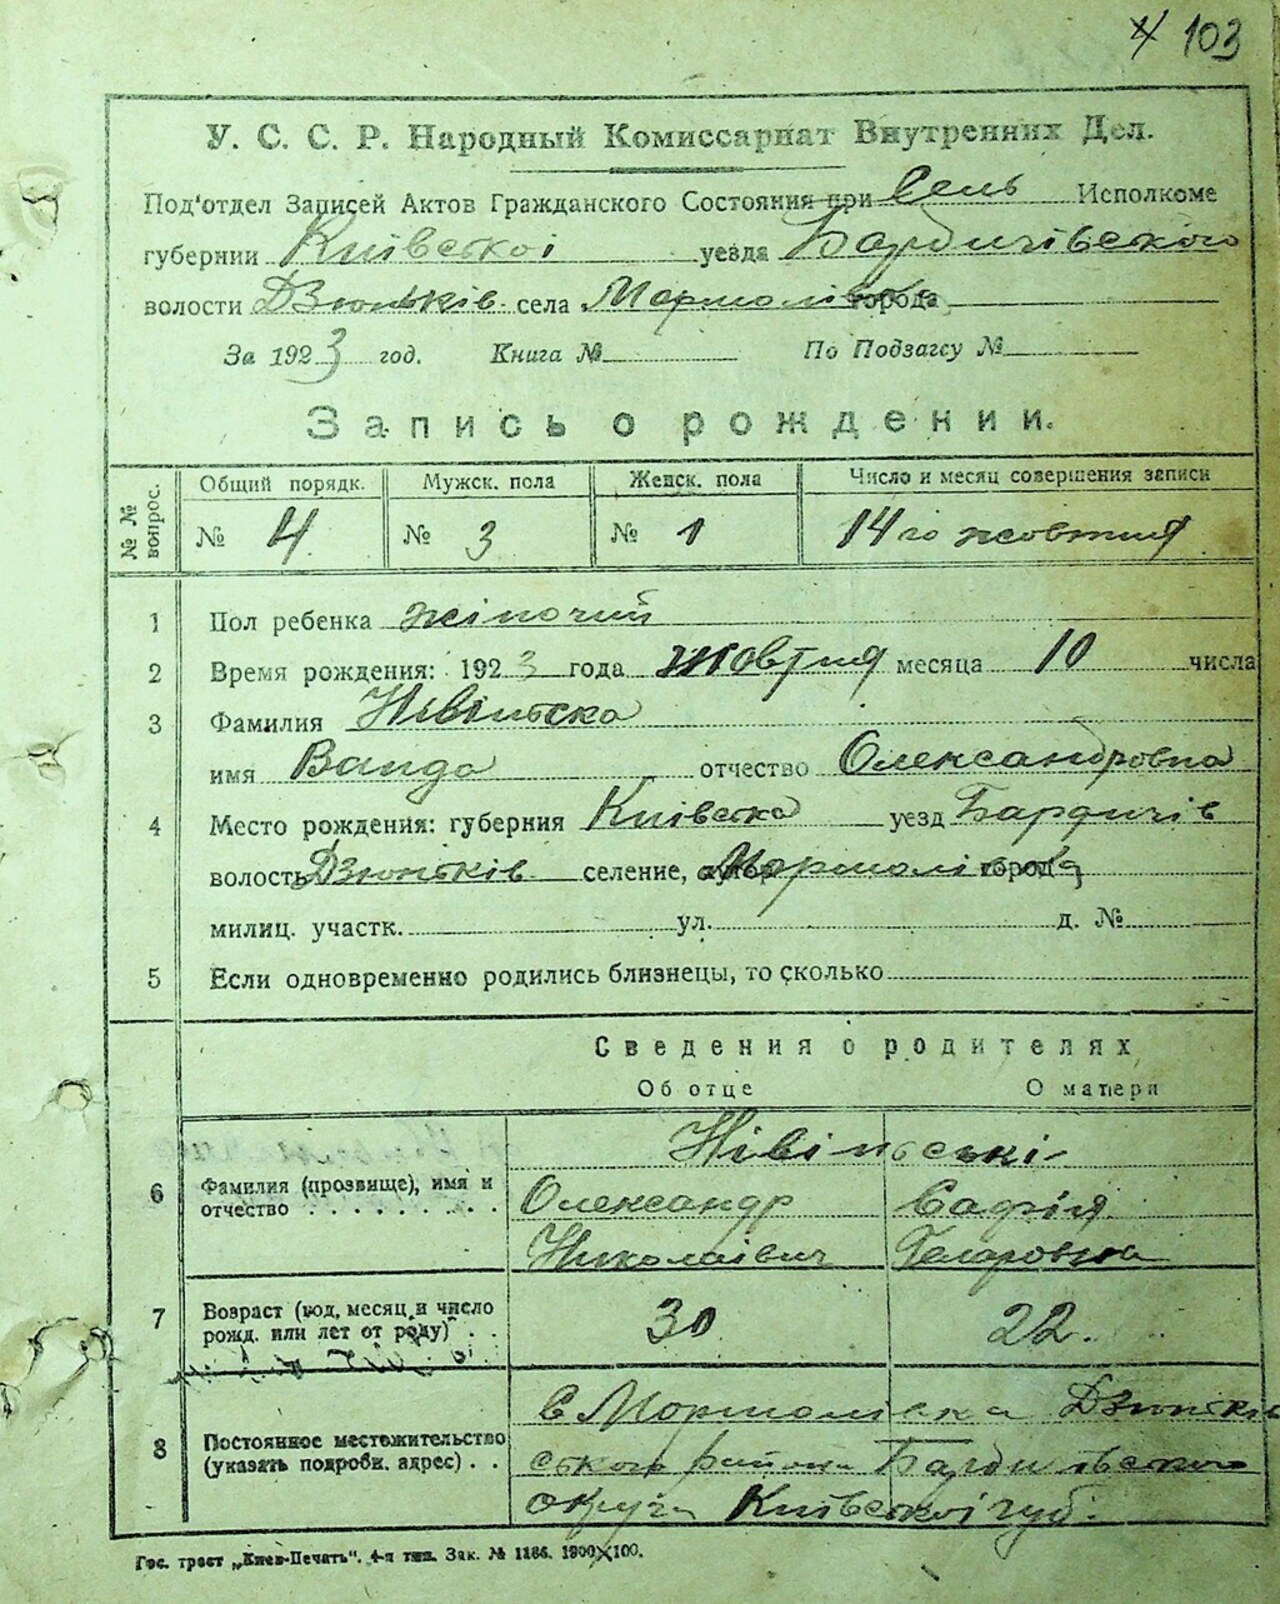 4 103
У. С. С. Р. Народный Комиссариат Внутренних Дел.
Под'отдел Записей Актов Гражданского Состояния при Сель Исполкоме
губернии Київскоі уезда Бардичівского
волости Дзюньків села Мармолівка города
За 1923 год. Книга № По Подзагсу №
Запись о рождении.
№ № вопрос.
Общий порядк. Мужск. пола Женск. пола Число и месяц совершения записи
№ 4 № 3 № 1 14го жовтня
1 Пол ребенка жіночий
2 Время рождения: 1923 года жовтня месяца 10 числа
3 Фамилия Нівінська
имя Ванда отчество Олександровна
4 Место рождения: губерния Київска уезд Бардичів
волость Дзюньків селение, хутор Мармолівка города
милиц. участк. ул. д. №
5 Если одновременно родились близнецы, то сколько
Сведения о родителях
Об отце О матери
Нівінські
6 Фамилия (прозвище), имя и отчество Олександр Софія
Николаівич
7 Возраст (год, месяц и число рожд. или лет от роду) 30 22.
8 Постоянное местожительство (указать подробн. адрес)
С Мармолівка Дзюньків
ського району Бардичівского
округа Київськоі губ.
Гос. трест „Киев-Печать". 4-я тип. Зак. № 1186. 1900×100.